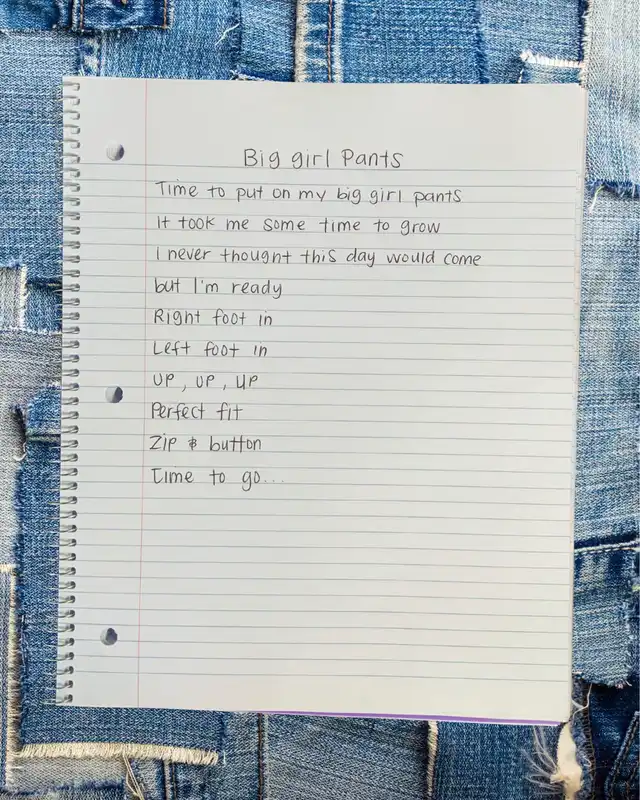 Big girl Pants
Time to put on my big girl pants
It took me some time to grow
I never thought this day would come
but I'm ready
Right foot in
Left foot in
UP, UP, UP
Perfect fit
Zip & button
Time to go...